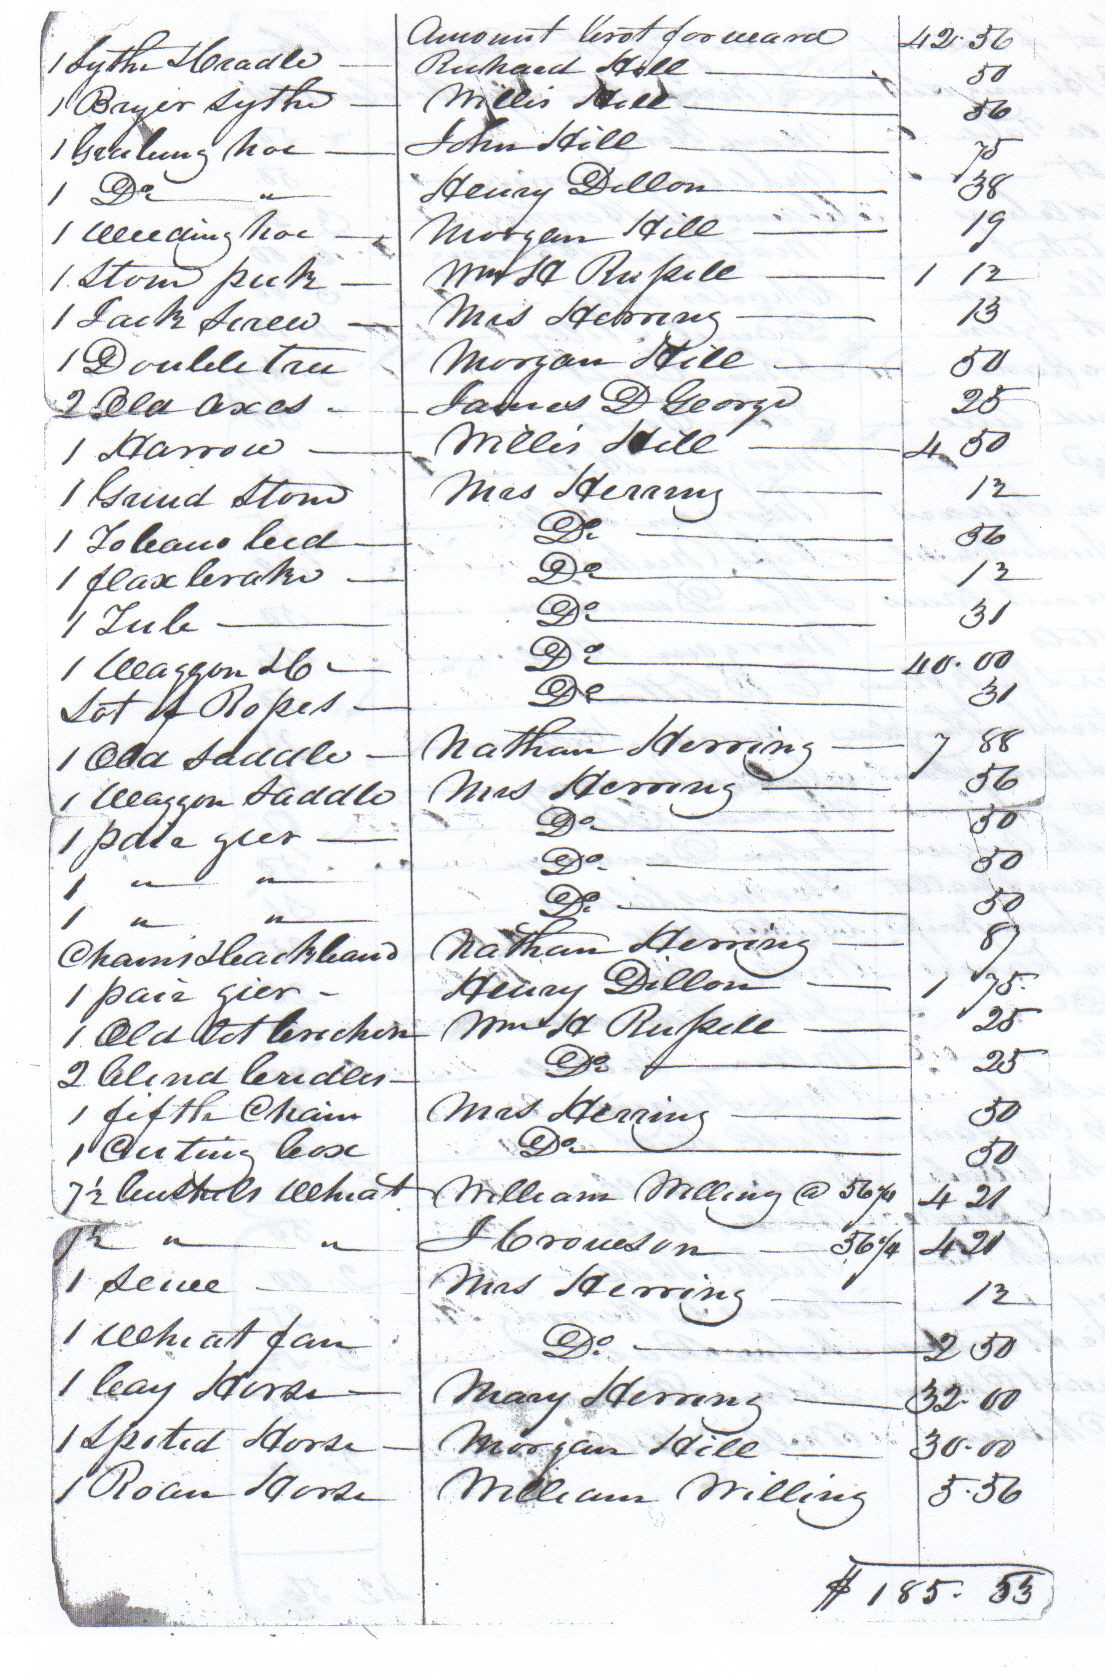 Amount brot forward 42.56
1 Sythe & Cradle Richard Hill 50
1 Bryer Sythe Willis Hill 56
1 Grubung hoe John Hill 75
1 Do " Henry Dillon 38
1 Weeding hoe Morgan Hill 19
1 Stone pick Wm H Russell 1 12
1 Jack Screw Mrs Herring 13
1 Doubletree Morgan Hill 50
2 Old axes James D George 25
1 Harrow Willis Hill 4 50
1 Grind Stone Mrs Herring 12
1 Tobacco bed Do 56
1 flax brake Do 12
1 Tub Do 31
1 Waggon &C Do 40.00
Lot of Ropes Do 31
1 Old Saddle Nathan Herring 7 88
1 Waggon Saddle Mrs Herring 56
1 pair gier Do 50
1 " " Do 50
1 " " Do 50
Chains & backband Nathan Herring 87
1 pair gier Henry Dillon 1 75
1 Old Lot brichen Wm H Russell 25
2 blind bridles Do 25
1 fifth Chain Mrs Herring 50
1 Cuting box Do 50
7½ bushels Wheat William Willing @ 56¼ 4 21
7½ " " J Croueson 56¼ 4 21
1 Seive Mrs Herring 12
1 Wheat fan Do 2 50
1 bay Horse Mary Herring 32.00
1 Spoted Horse Morgan Hill 30.00
1 Roan Horse William Willing 5.56
$ 185. 53